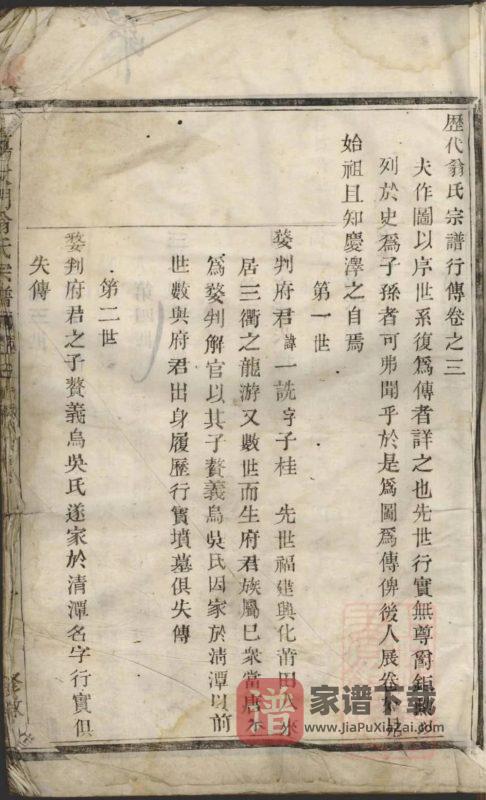 歷代翁氏宗譜行傳卷之三
夫作圖以序世系復爲傳者詳之也先世行實無尊爵鉅
列於史爲子孫者可弗聞乎於是爲圖爲傳俾後人展卷
始祖且知慶澤之自焉
第一世
婺判府君諱一詵字子桂 先世福建興化莆田人來
居三衢之龍游又數世而生府君族屬已衆當唐
爲婺判解官以其子贅義烏吳氏因家於淸潭以前
世數與府君出身履歷行實墳墓俱失傳
第二世
婺判府君之子贅義烏吳氏遂家於清潭名字行實俱
失傳
譜
家谱下载
www.JiaPuXiaZai.com